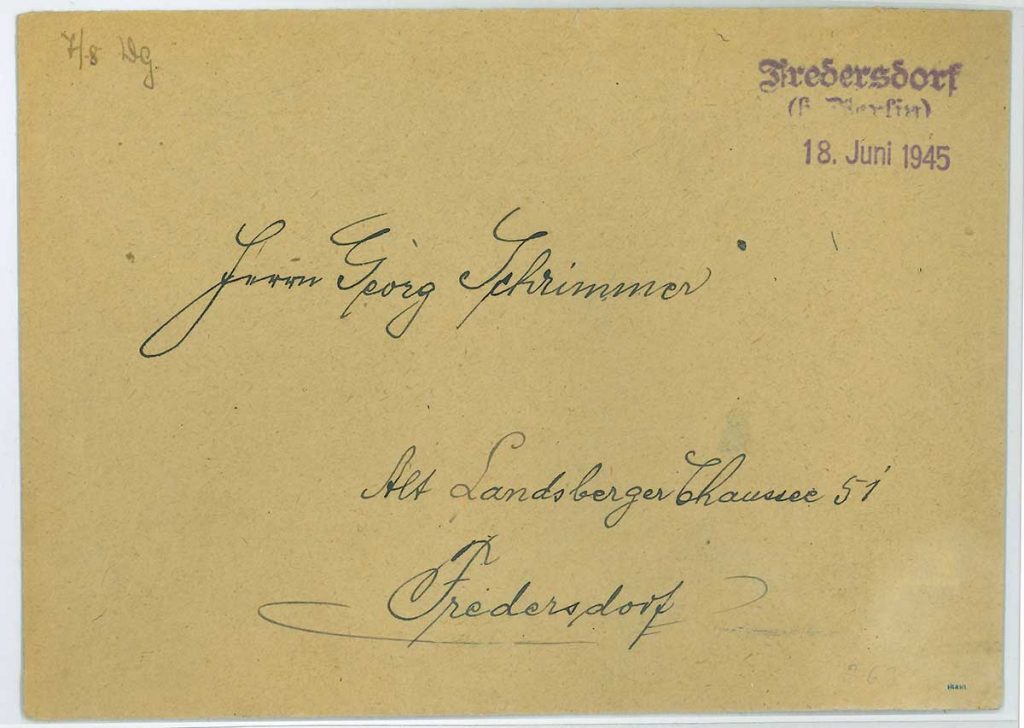 7/8 Dg.
Fredersdorf
(b. Berlin)
18. Juni 1945
Herrn Georg Schrimmer
Alt Landsberger Chaussee 51
Fredersdorf